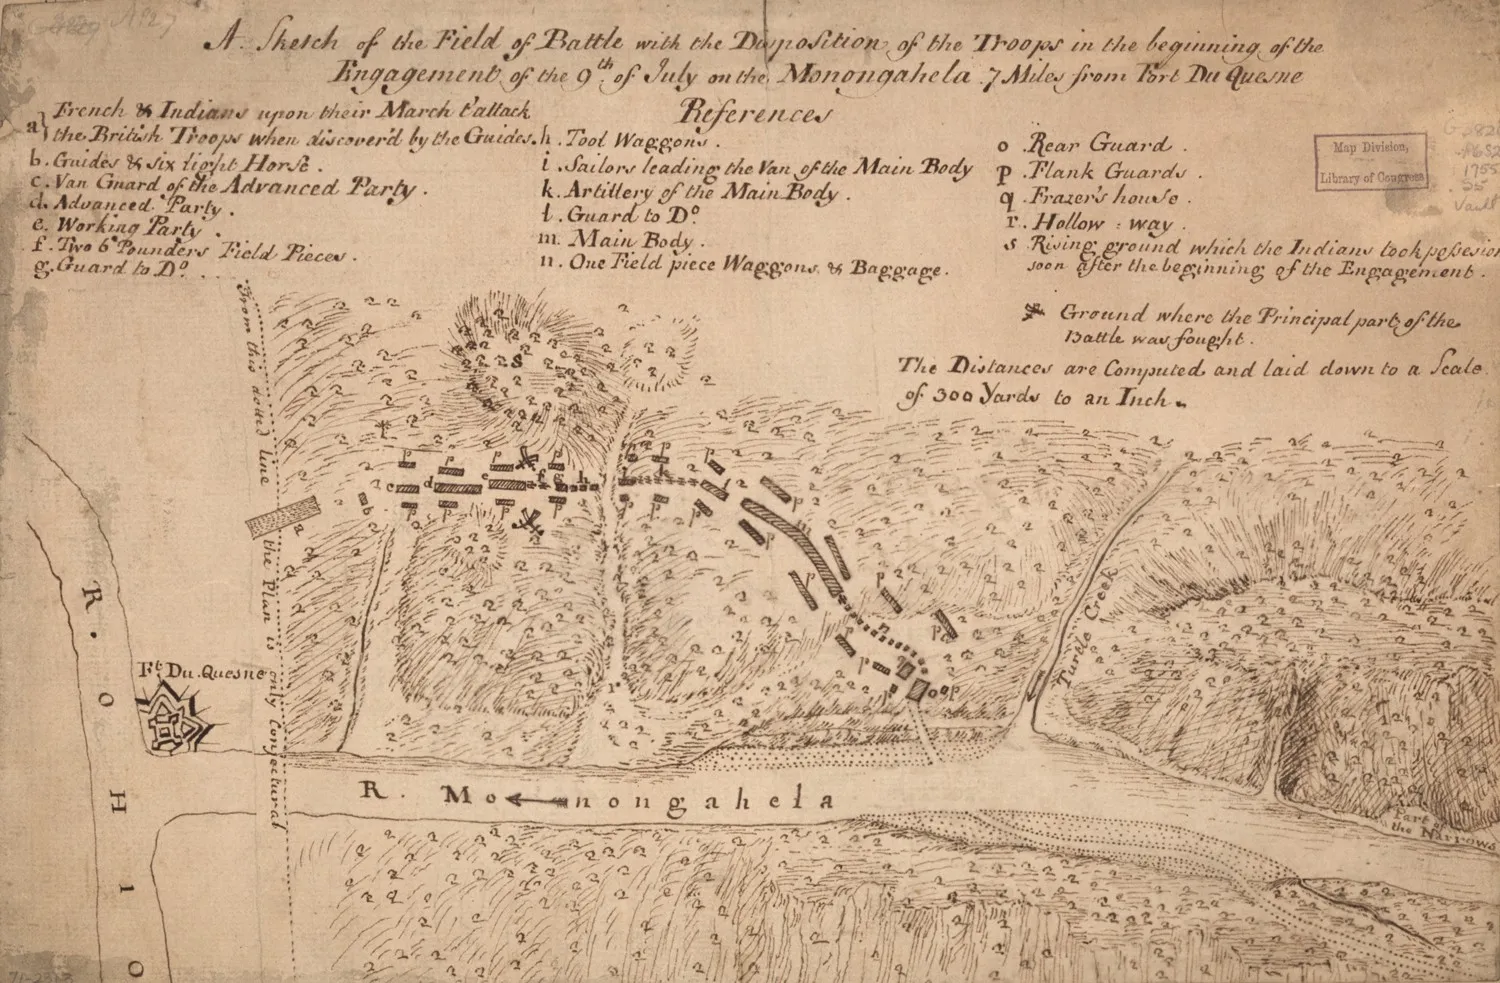 A Sketch of the Field of Battle with the Disposition of the Troops in the beginning of the
Engagement of the 9th of July on the Monongahela 7 Miles from Fort Du Quesne
References
a} French & Indians upon their March t'attack
the British Troops when discover'd by the Guides.
b. Guides & six light Horse.
c. Van Guard of the Advanced Party.
d. Advanced Party.
e. Working Party.
f. Two 6 Pounders Field Pieces.
g. Guard to Do.
h. Tool Waggons.
i. Sailors leading the Van of the Main Body
k. Artillery of the Main Body.
l. Guard to Do.
m. Main Body.
n. One Field piece Waggons & Baggage.
o Rear Guard.
p Flank Guards.
q. Frazer's house.
r. Hollow : way.
s Rising ground which the Indians took possesion
soon after the beginning of the Engagement.
Ground where the Principal part of the
Battle was fought.
The Distances are Computed and laid down to a Scale
of 300 Yards to an Inch.
Map Division,
Library of Congress
1755
Vault
From this doted line the Plan is only Conjectural
s
p p p p p
c d e f g h i k l
p p p p
b
a
m
n
p
q
o
r
Ft. Du Quesne
R. OHIO
R. Monongahela
Turtle Creek
Part of
the Narrows